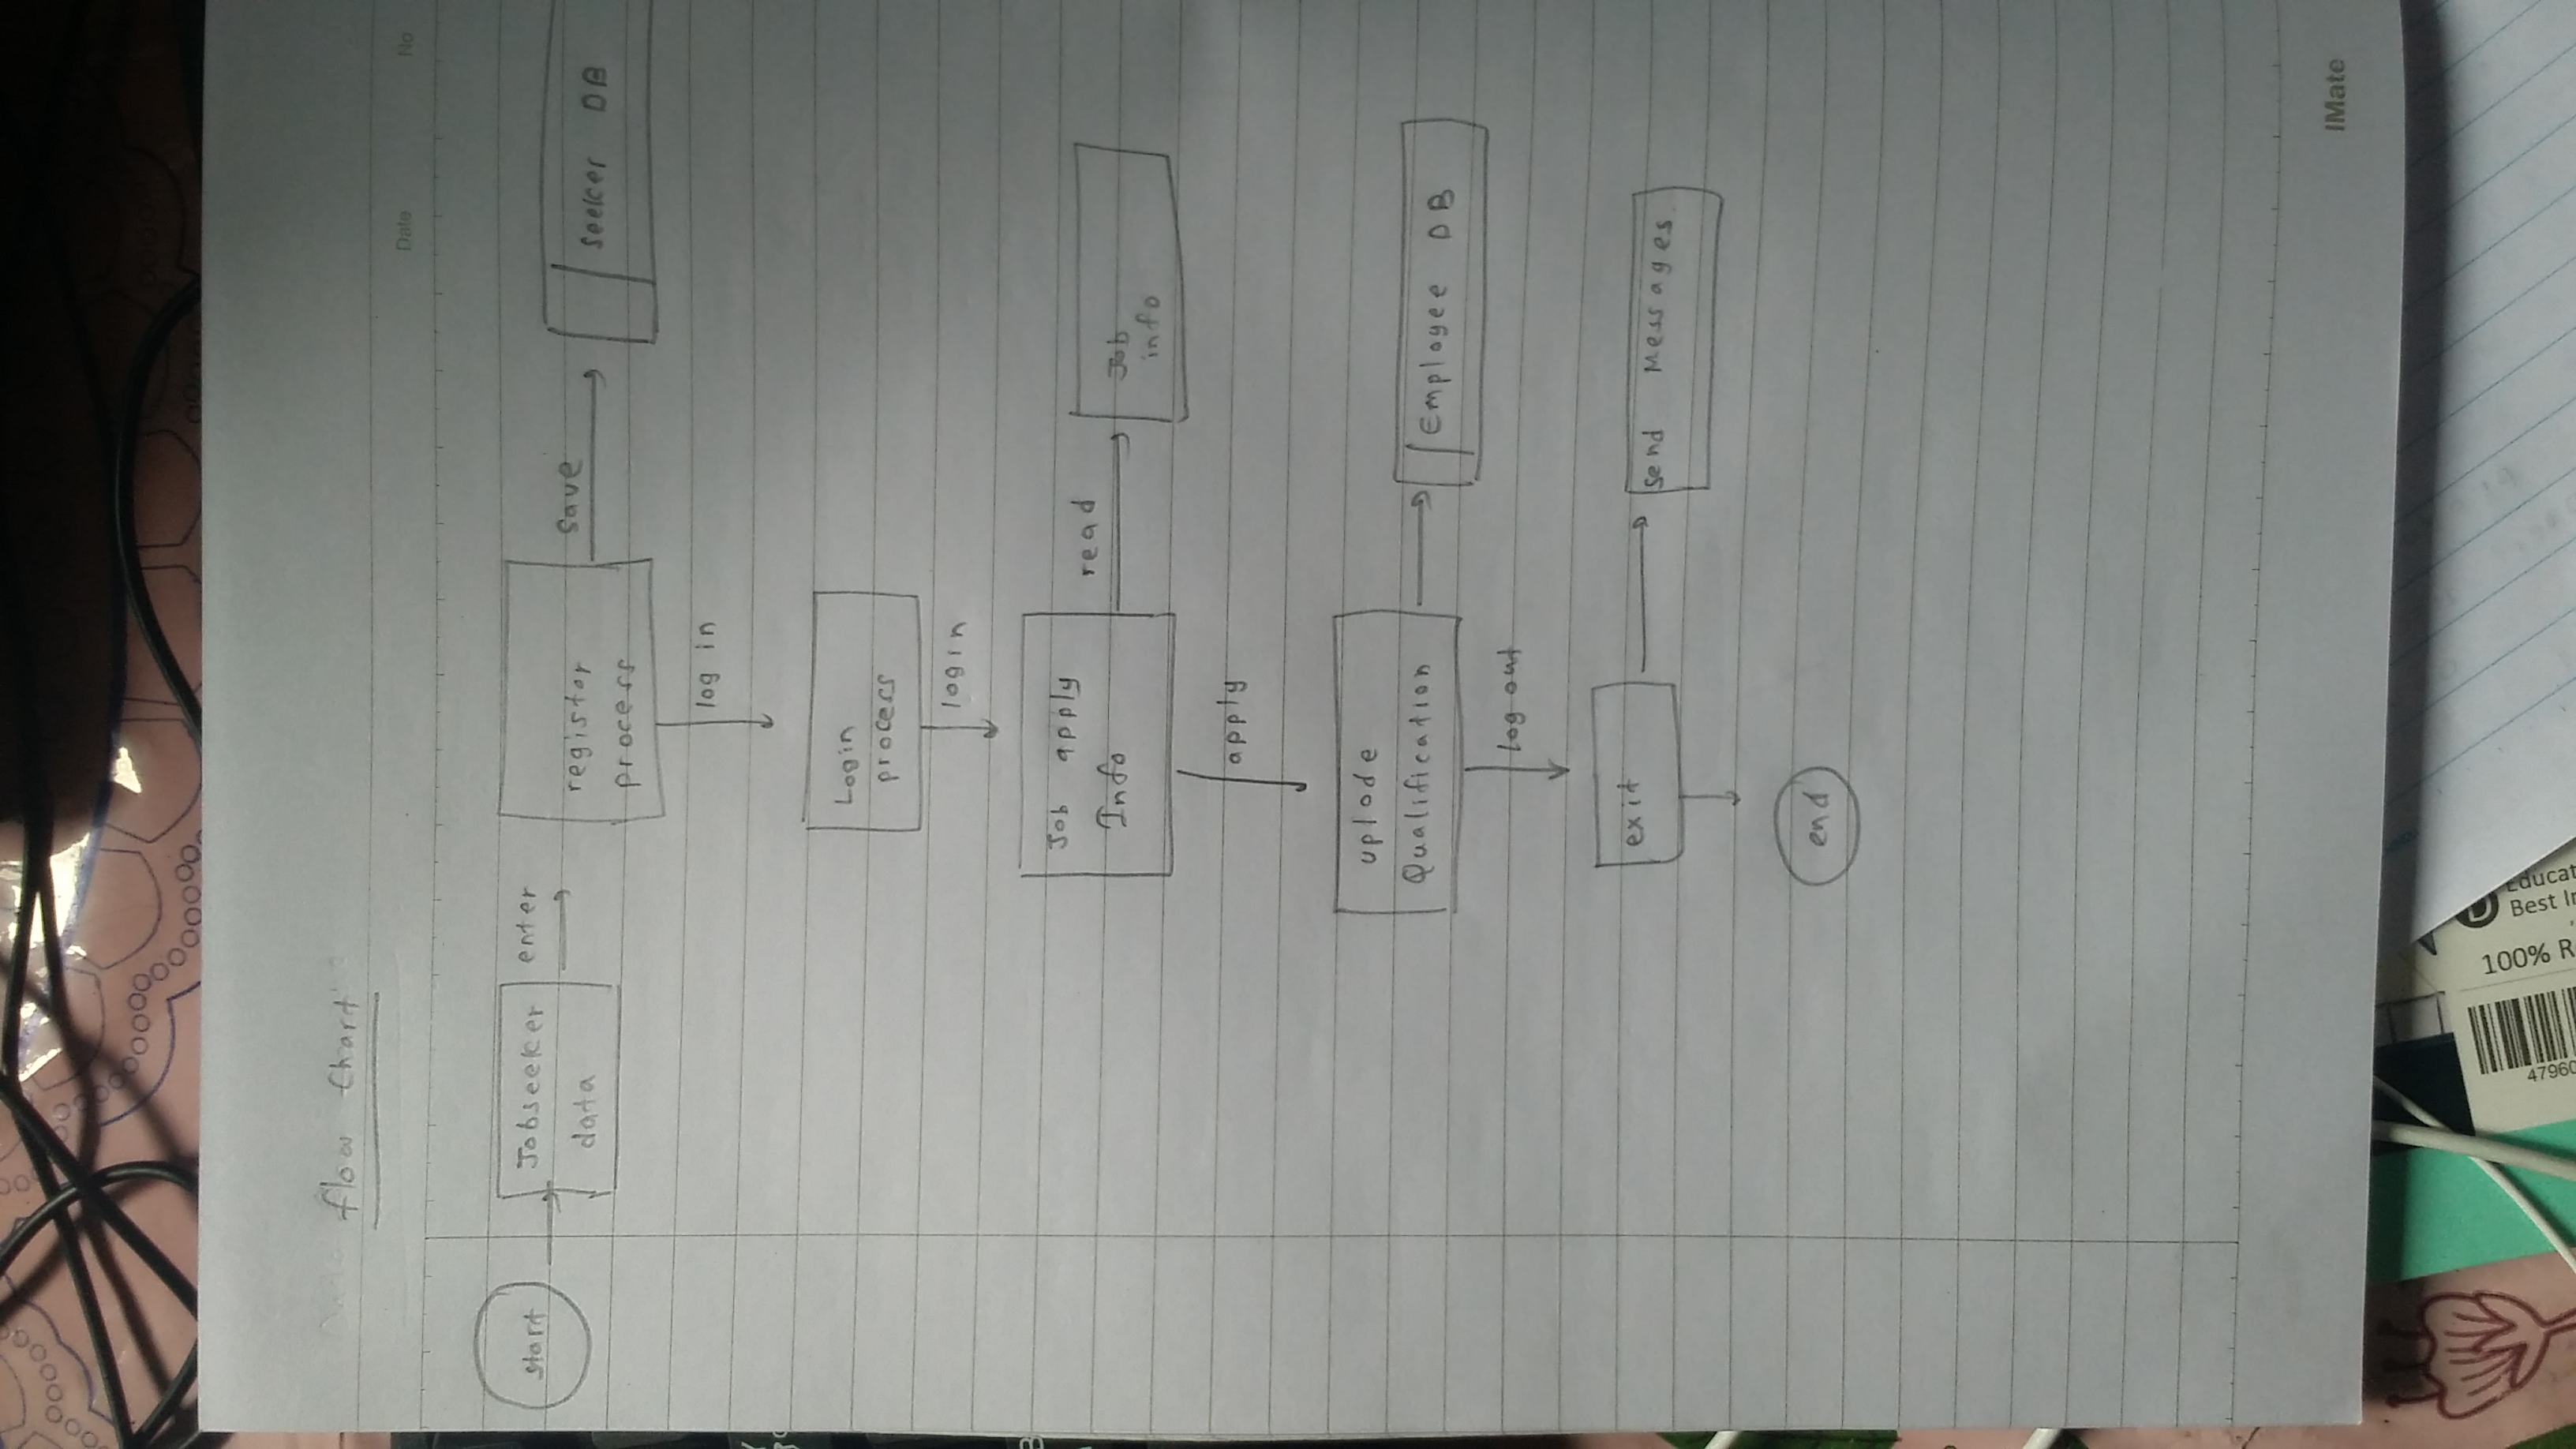 flow Chart
Date No
start
Jobseeker
data
enter
registor
process
save
seeker DB
log in
Login
process
login
Job apply
Info
read
Job
info
apply
uplode
Qualification
Employee DB
log out
exit
send Messages
end
IMate
100% R
Best In
Educat
47960